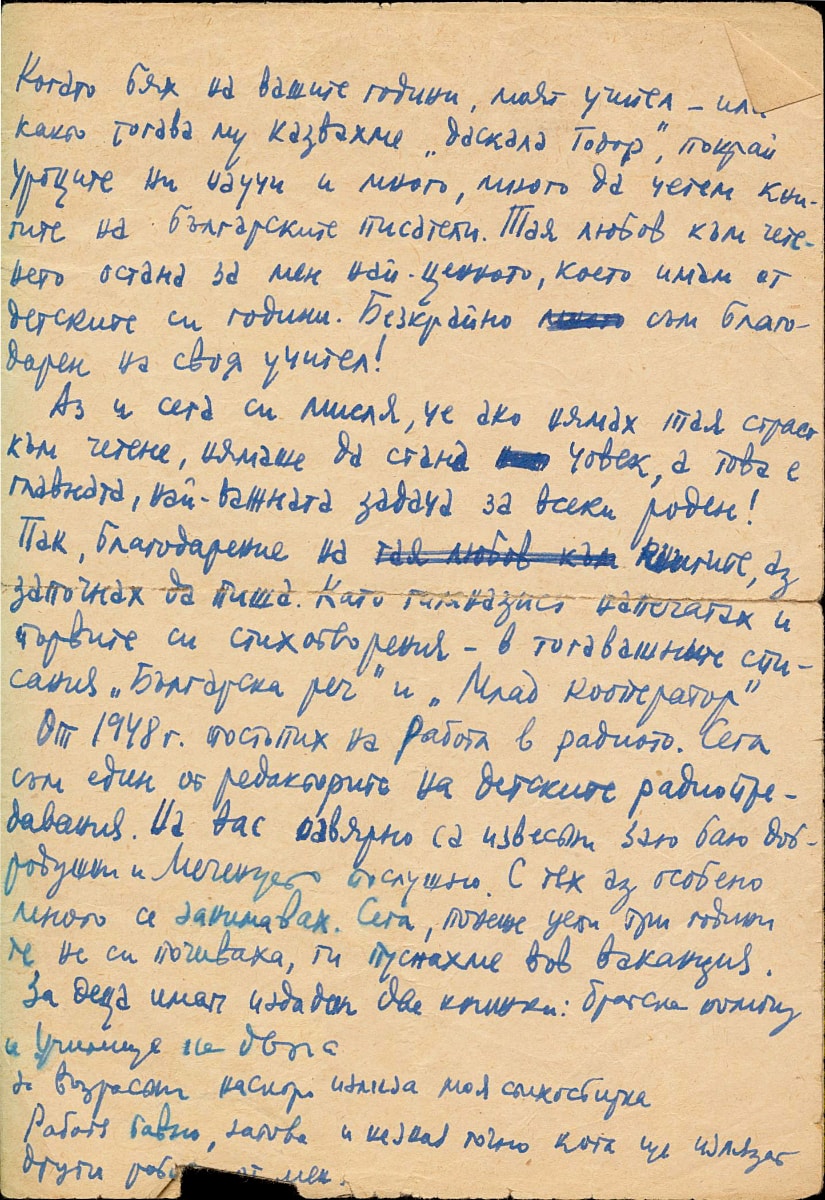 Когато бях на вашите години, моят учител – или
както тогава му казвахме „даскала Тодор", покрай
уроците ни научи и много, много да четем кни-
гите на българските писатели. Тая любов към чете-
нето остана за мен най-ценното, което имам от
детските си години. Безкрайно много съм благо-
дарен на своя учител!
Аз и сега си мисля, че ако нямах тая страст
към четене, нямаше да стана човек, а това е
главната, най-важната задача за всеки роден!
Пак, благодарение на тая любов към книгите, аз
започнах да пиша. Като гимназист напечатах и
първите си стихотворения – в тогавашните спи-
сания „Българска реч" и „Млад кооператор"
От 1948 г. постъпих на работа в радиото. Сега
съм един от редакторите на детските радиопре-
давания. На вас навярно са известни Заю баю доб-
родушни и Меченцето послушно. С тех аз особено
много се занимавах. Сега, понеже цели три години
те не си почиваха, ги пуснахме във ваканция.
За деца имам издадени две книжки: Братска помощ
и Училище на двора
За възрастни наскоро излиза моя стихосбирка
Работя бавно, затова и незная точно кога ще излязат
други от мен.